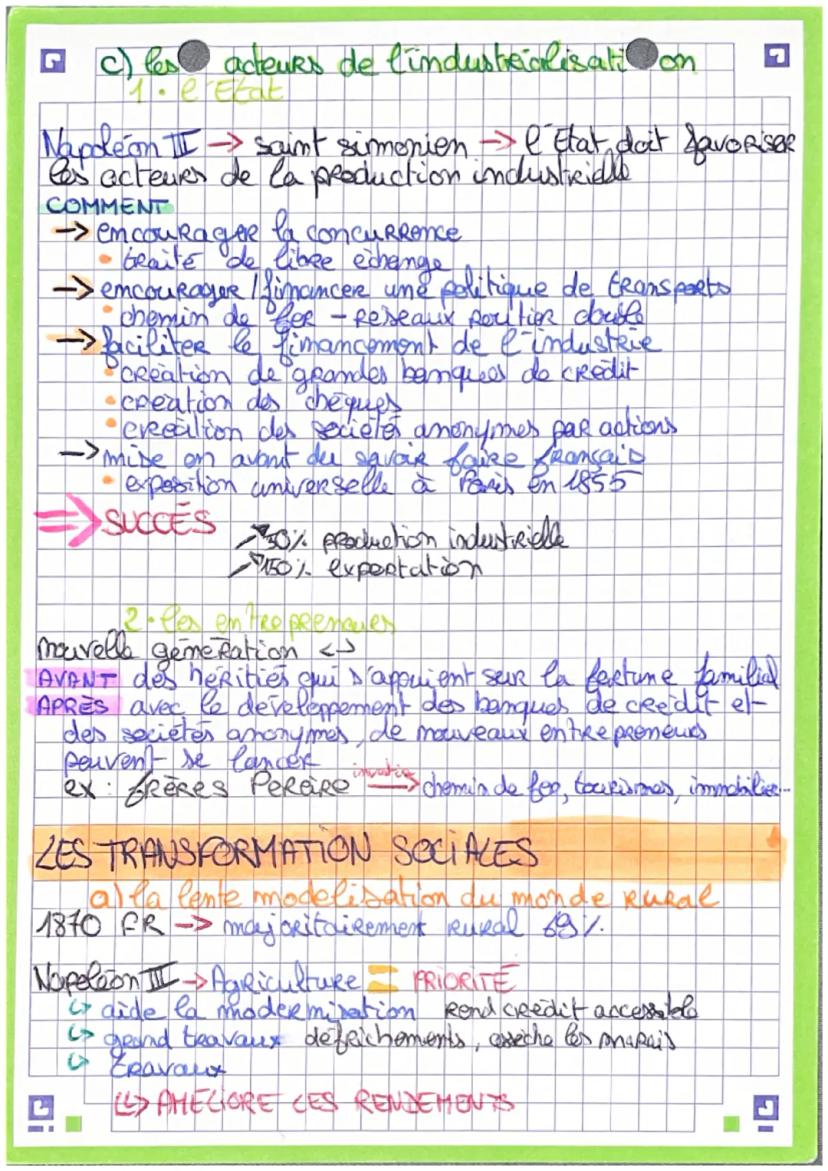 c) les acteurs de l'industrialisation
1. l'Etat
Napoléon III → saint simonien → l'Etat doit favoriser
les acteurs de la production industrielle
COMMENT
→ encourager la concurrence
• traité de libre échange
→ encourager / financer une politique de transports
• chemin de fer - réseaux routier double
→ faciliter le financement de l'industrie
• création de grandes banques de crédit
• création des chèques
• création des sociétés anonymes par actions
→ mise en avant du savoir faire français
• exposition universelle à Paris en 1855
⇒ SUCCÈS ↗ 50% production industrielle
↗ 150% exportation
2. les entrepreneurs
nouvelle génération
AVANT des héritiés qui s'appuient sur la fortune familial
APRÈS avec le développement des banques de crédit et
des sociétés anonymes, de nouveaux entrepreneurs
peuvent se lancer
ex : FRÈRES PEREIRE → chemin de fer, tourismes, immobilier...
LES TRANSFORMATION SOCIALES
a) la lente modélisation du monde rural
1870 FR → majoritairement rural 69%
Napoléon III → Agriculture = PRIORITÉ
↪ aide la modernisation rend crédit accessible
↪ grand travaux défrichements, assèche les marais
↪ travaux
↪ AMÉLIORE CES RENDEMENTS